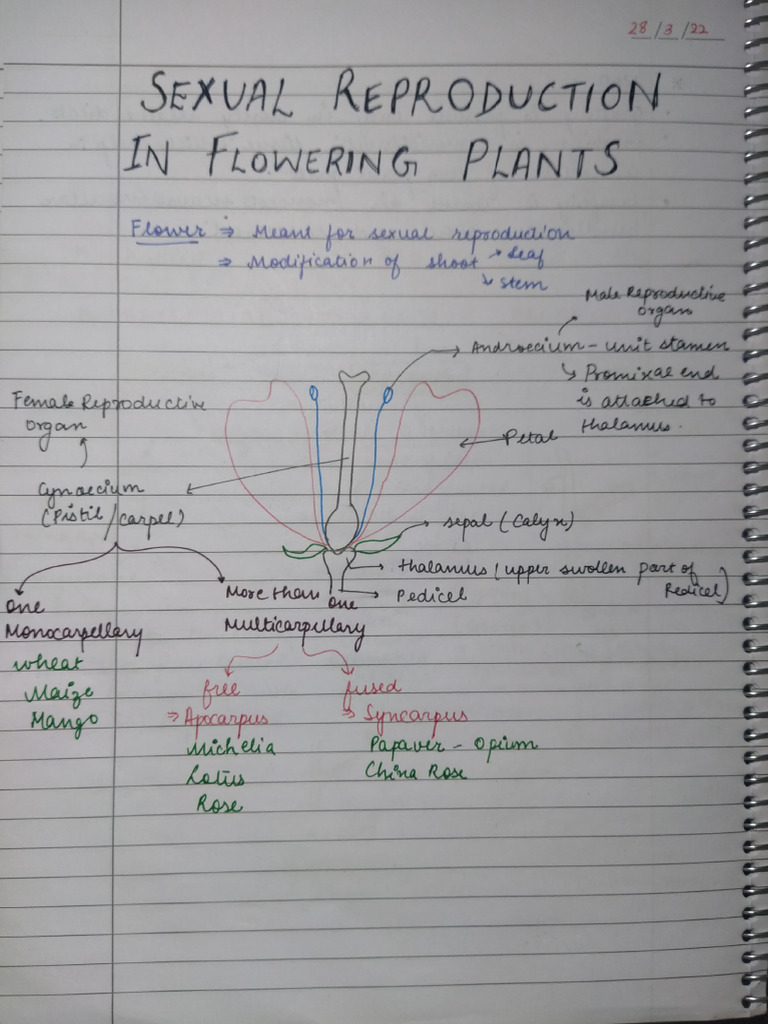 28/3/22
SEXUAL REPRODUCTION
IN FLOWERING PLANTS
Flower ⇒ Meant for sexual reproduction
⇒ Modification of shoot → leaf
↘ stem
Male Reproductive
organ
Androecium - unit stamen
↳ Promixal end
is attached to
thalamus.
Female Reproductive
organ
Petal
Gynoecium
(Pistil/carpel)
sepal (Calyx)
thalamus (upper swollen part of
Pedicel)
Pedicel
one
Monocarpellary
wheat
Maize
Mango
More than one
Multicarpellary
free
⇒ Apocarpus
Michelia
Lotus
Rose
fused
⇒ Syncarpus
Papaver - Opium
China Rose